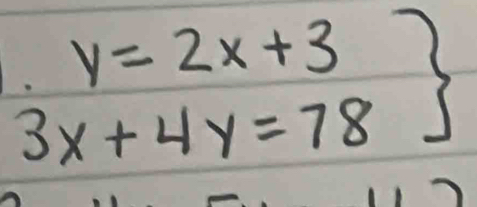 1. y = 2x + 3 }
3x + 4y = 78